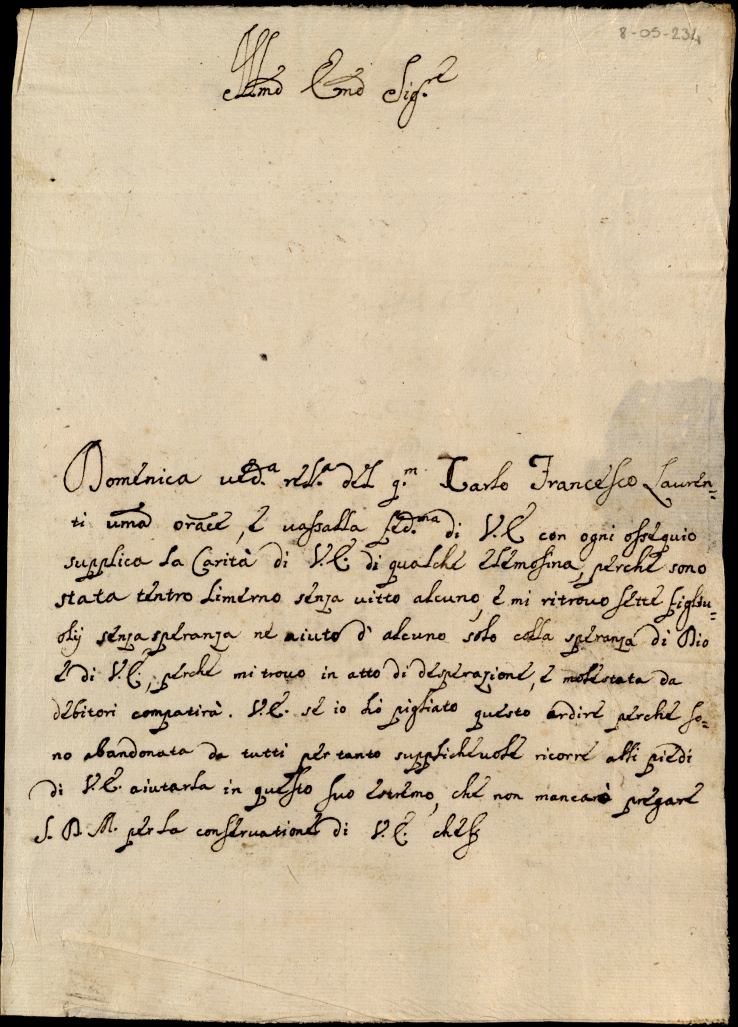 8-05-234
Illmo Emo Sig.re
Domenica ved.a rel.a del q.m Carlo Francesco Lauren=
ti uma orace, è vassalla fed.ma di V.E. con ogni ossequio
supplica la Carità di V.E. di qualche elemosina, perche sono
stata tentro linverno senza vitto alcuno, è mi ritrovo sette figliu=
olij senza speranza ne aiuto d'alcuno solo colla speranza di Dio
è di V.E., perche mi trovo in atto di desperazione, è molestata da
debitori compatirà. V.E. se io hò pigliato questo ardire perche so=
no abandonata da tutti per tanto supplichevole ricorre alli piedi
di V.E. aiutarla in questo suo estremo, che non mancarò pregare
S. D. M. per la conservatione di V.E. che